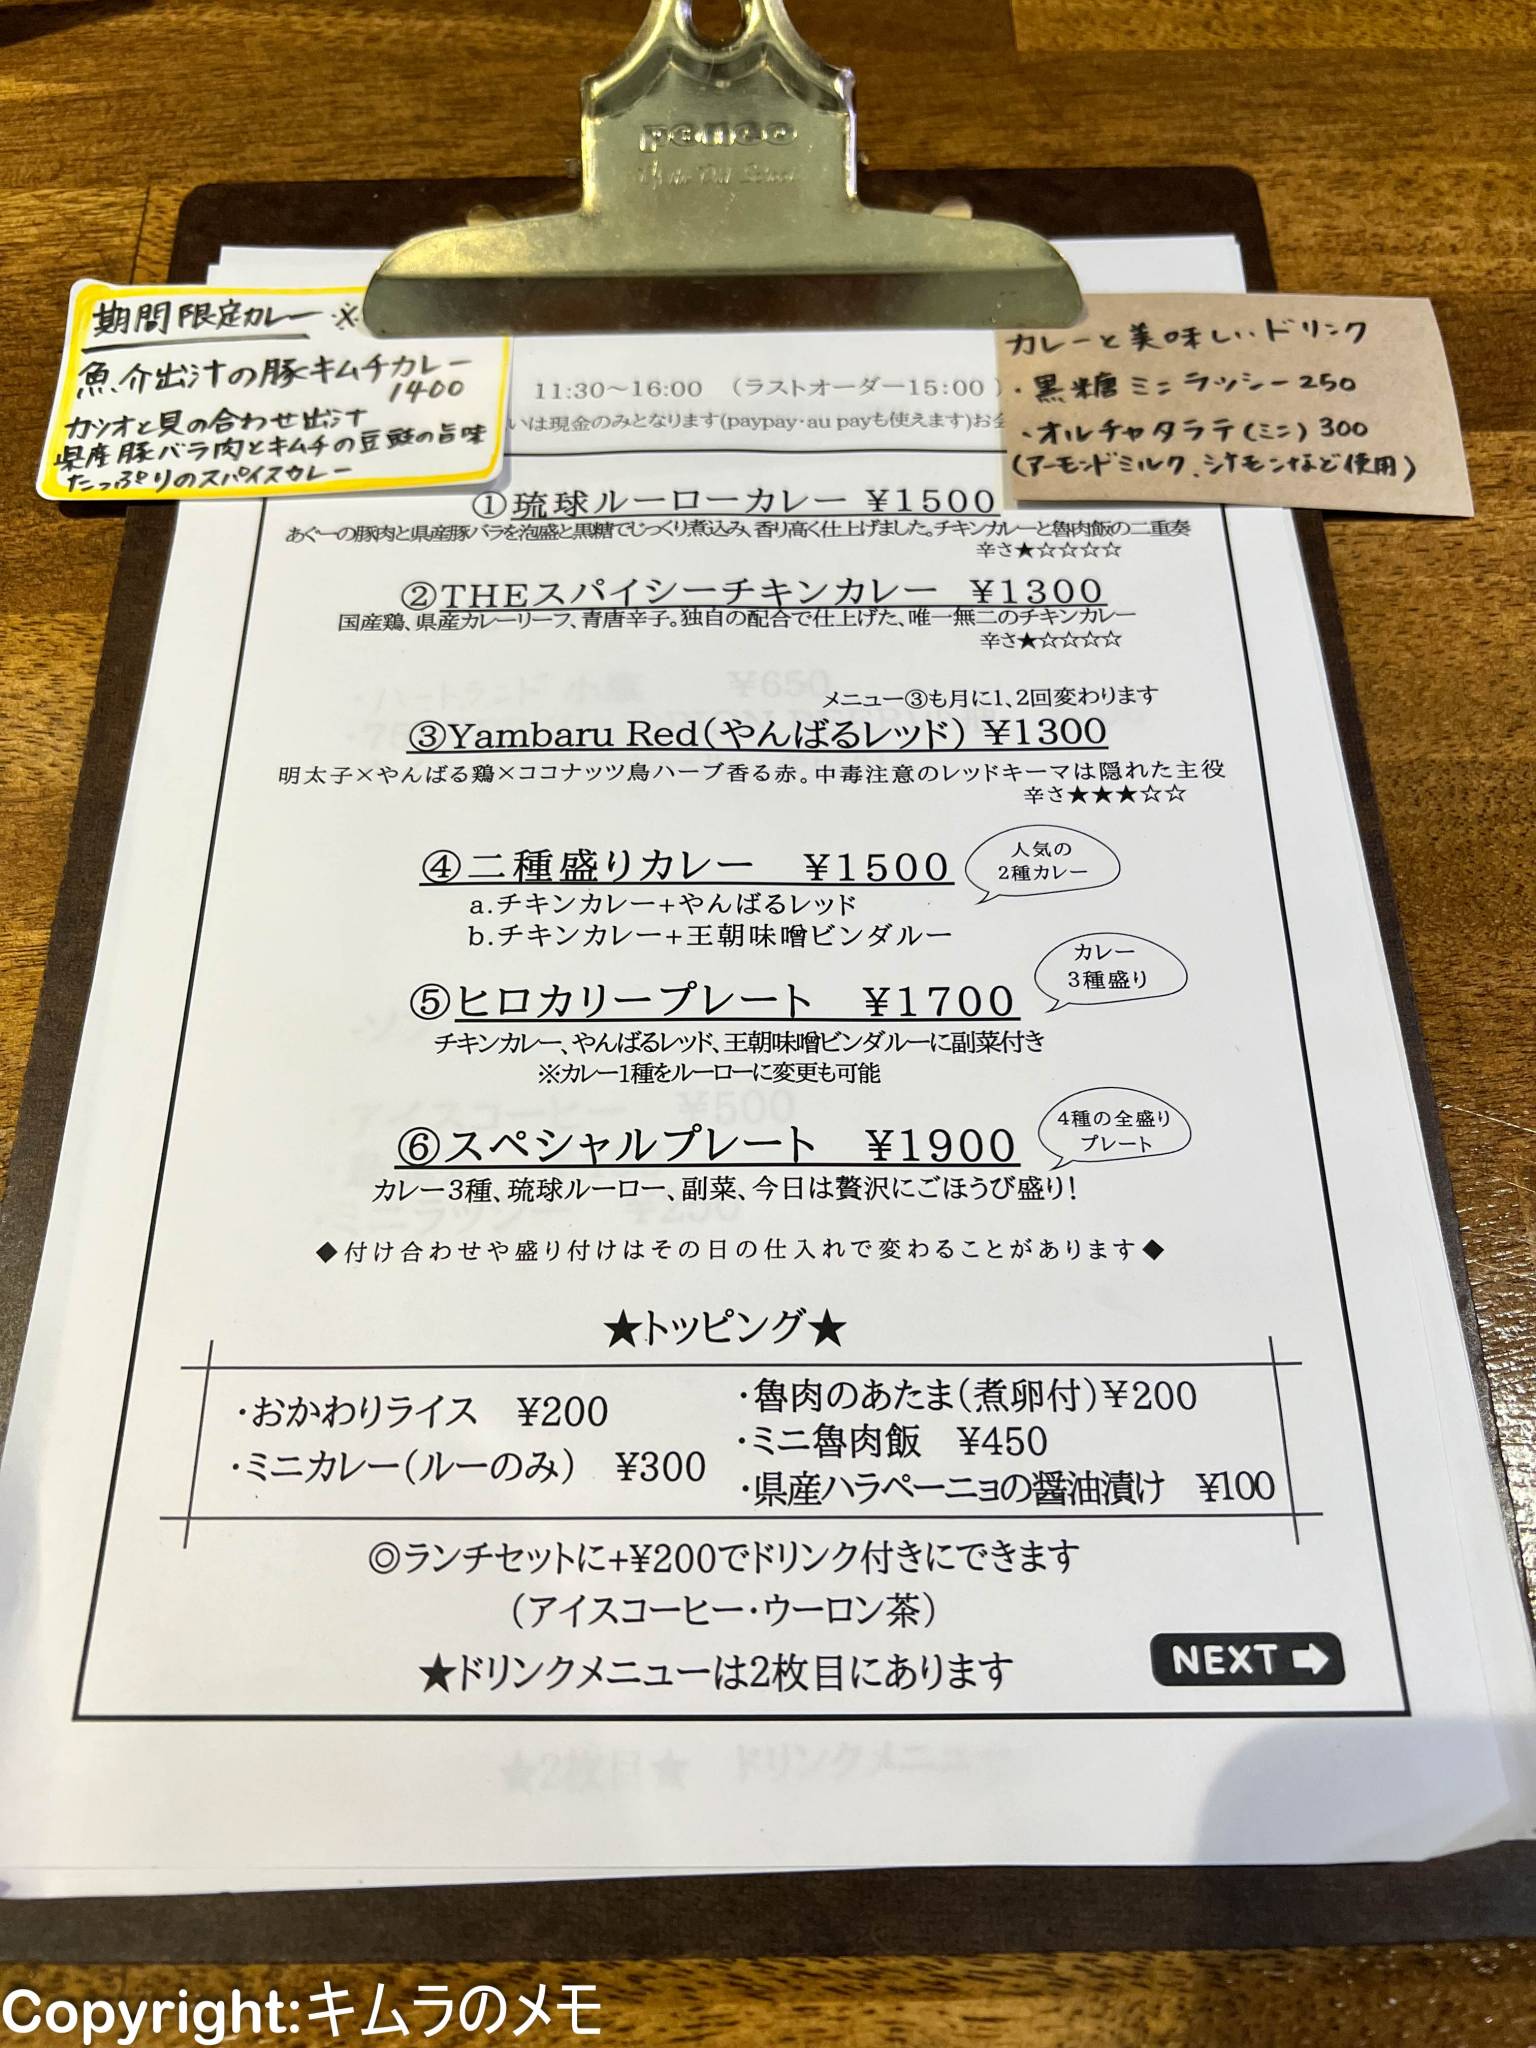 penco
期間限定カレー ※
魚介出汁の豚キムチカレー
1400
カツオと貝の合わせ出汁
県産豚バラ肉とキムチの豆鼓の旨味
たっぷりのスパイスカレー
カレーと美味しいドリンク
・黒糖ミニラッシー250
・オルチャタラテ(ミニ) 300
(アーモンドミルク、シナモンなど使用)
11:30～16:00 （ラストオーダー15:00 ）
いは現金のみとなります(paypay・au payも使えます)お会
①琉球ルーローカレー ¥1500
あぐーの豚肉と県産豚バラを泡盛と黒糖でじっくり煮込み、香り高く仕上げました。チキンカレーと魯肉飯の二重奏
辛さ★☆☆☆☆
②THEスパイシーチキンカレー ¥1300
国産鶏、県産カレーリーフ、青唐辛子。独自の配合で仕上げた、唯一無二のチキンカレー
辛さ★☆☆☆☆
メニュー③も月に1、2回変わります
③Yambaru Red（やんばるレッド） ¥1300
明太子×やんばる鶏×ココナッツ鳥ハーブ香る赤。中毒注意のレッドキーマは隠れた主役
辛さ★★★☆☆
④二種盛りカレー ¥1500
人気の
2種カレー
a.チキンカレー+やんばるレッド
b.チキンカレー+王朝味噌ビンダルー
⑤ヒロカリープレート ¥1700
カレー
3種盛り
チキンカレー、やんばるレッド、王朝味噌ビンダルーに副菜付き
※カレー1種をルーローに変更も可能
⑥スペシャルプレート ¥1900
4種の全盛り
プレート
カレー3種、琉球ルーロー、副菜、今日は贅沢にごほうび盛り！
◆付け合わせや盛り付けはその日の仕入れで変わることがあります◆
★トッピング★
・おかわりライス ¥200
・ミニカレー（ルーのみ） ¥300
・魯肉のあたま（煮卵付）¥200
・ミニ魯肉飯 ¥450
・県産ハラペーニョの醤油漬け ¥100
◎ランチセットに+¥200でドリンク付きにできます
（アイスコーヒー・ウーロン茶）
★ドリンクメニューは2枚目にあります
NEXT
★2枚目★ ドリンクメニュー
Copyright:キムラのメモ